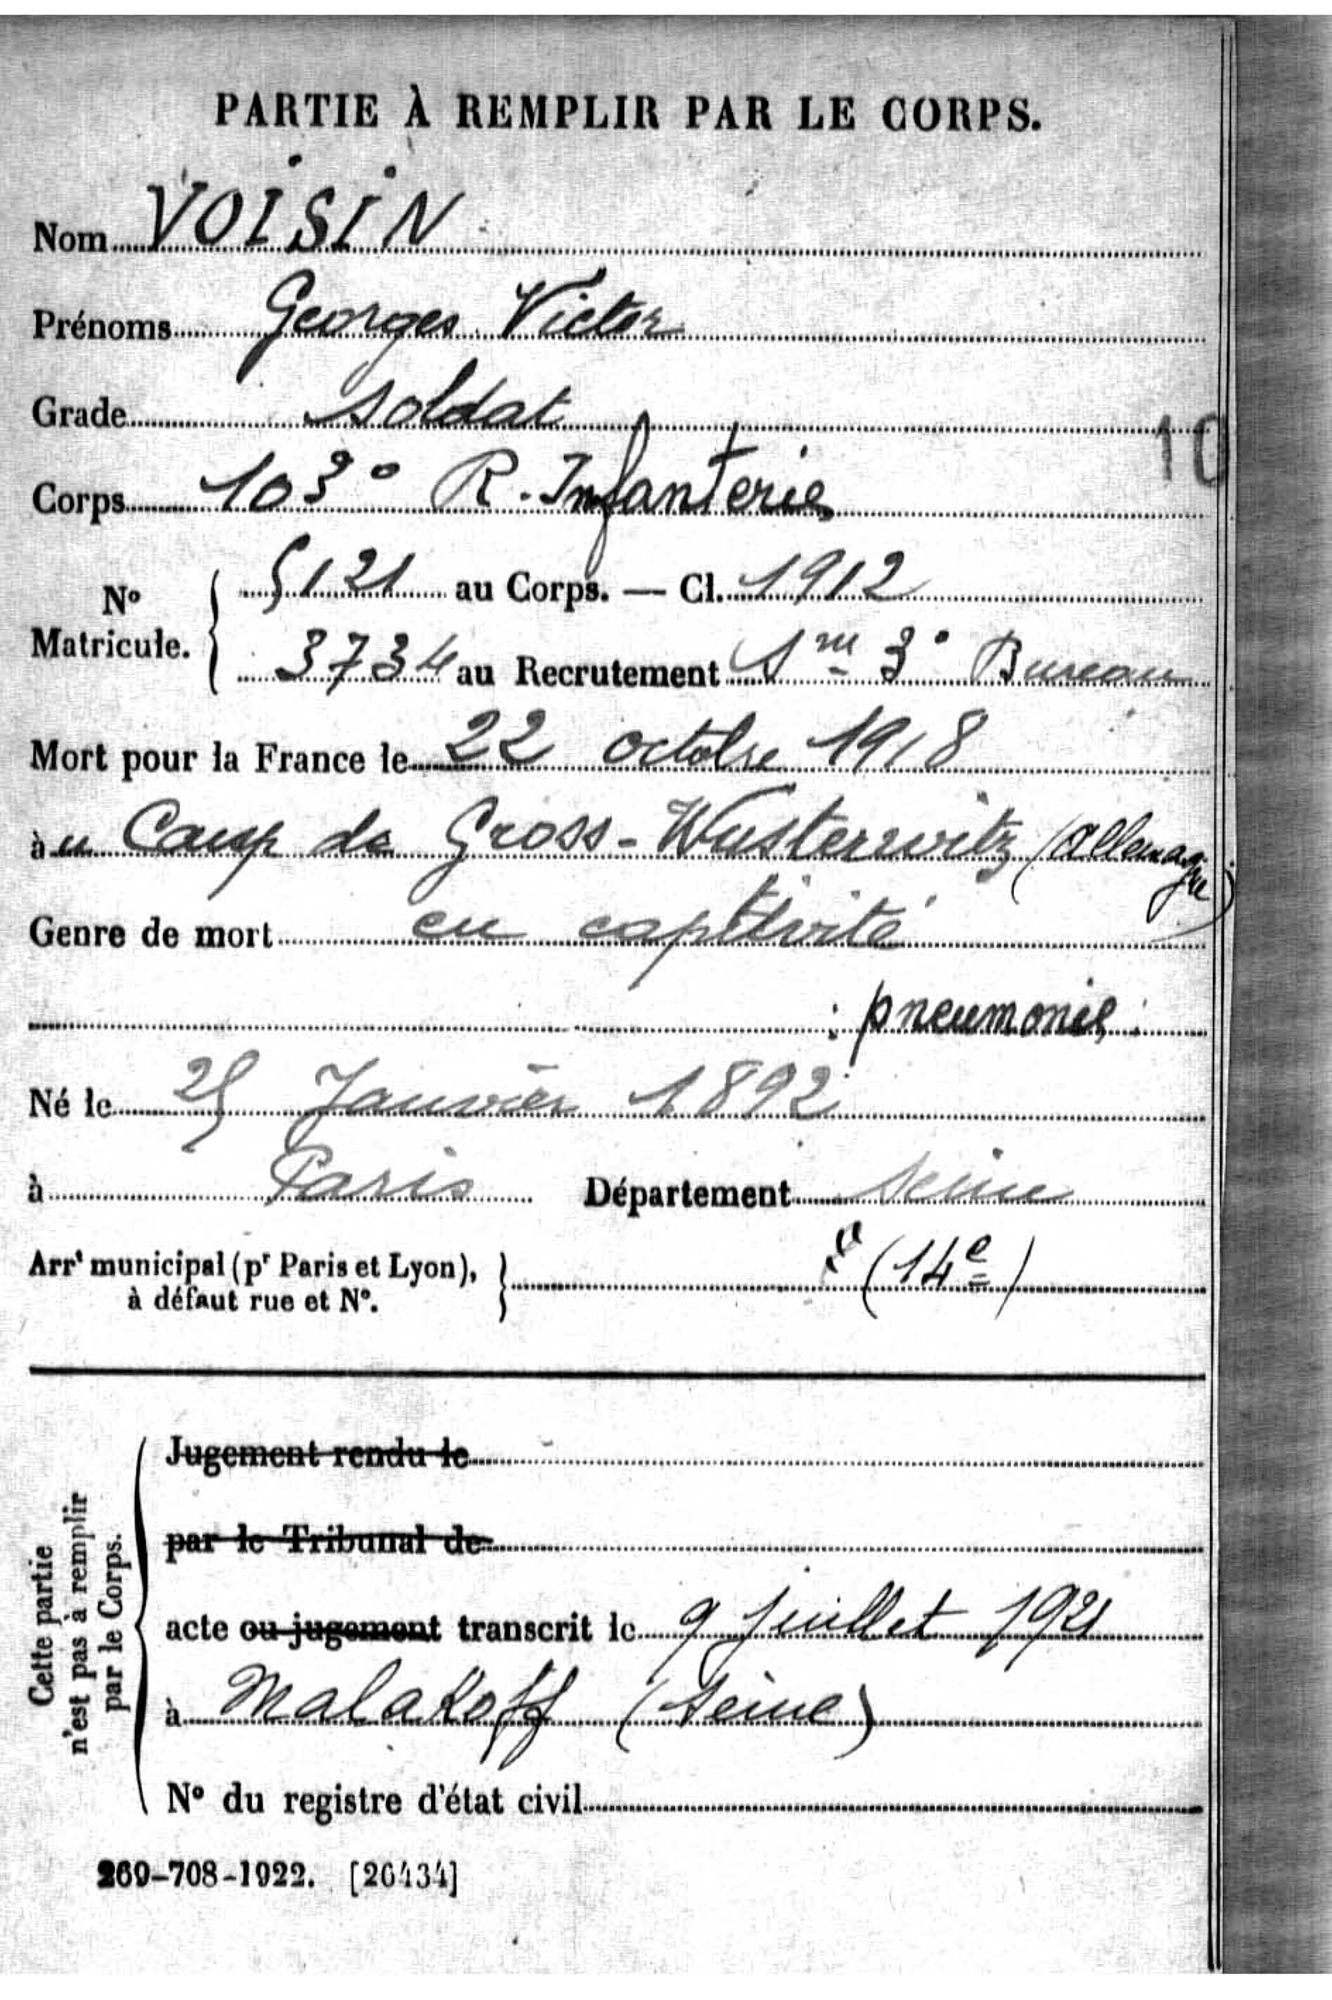 PARTIE À REMPLIR PAR LE CORPS.
Nom VOISIN
Prénoms Georges Victor
Grade soldat
10
Corps 103° R. Infanterie
N° Matricule. { 5121 au Corps. — Cl. 1912
3734 au Recrutement Sne 3° Bureau
Mort pour la France le 22 octobre 1918
àu Camp de Gross-Wusterwitz (Allemagne)
Genre de mort en captivité
: pneumonie
Né le 25 Janvier 1892
à Paris Département Seine
Arrt municipal (pr Paris et Lyon), à défaut rue et N°. } (14e)
Cette partie n'est pas à remplir par le Corps.
Jugement rendu le
par le Tribunal de
acte ou jugement transcrit le 9 juillet 1921
à Malakoff (Seine)
N° du registre d'état civil
269-708-1922. [26434]